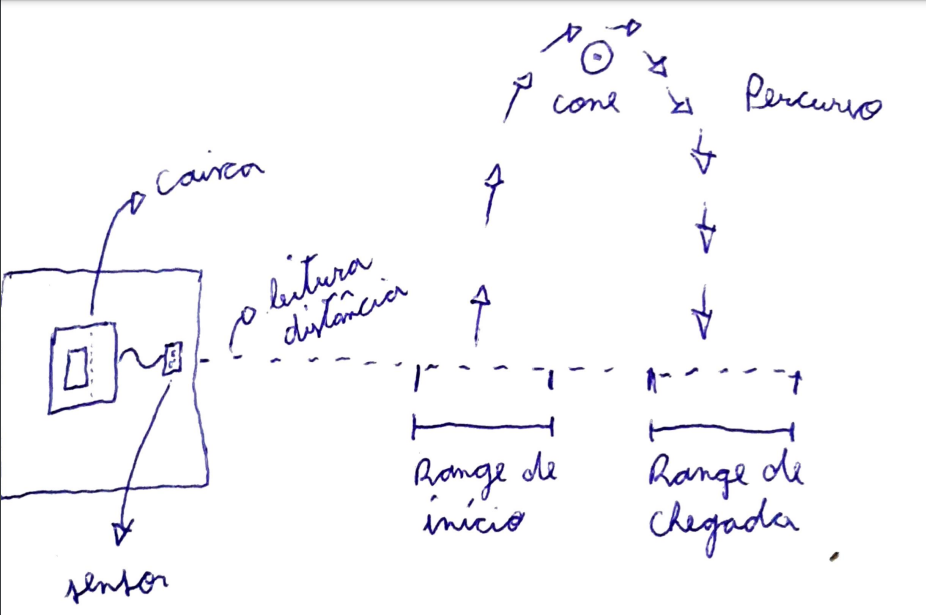 cone
Percurso
Caixa
leitura
distância
Range de
início
Range de
chegada
sensor